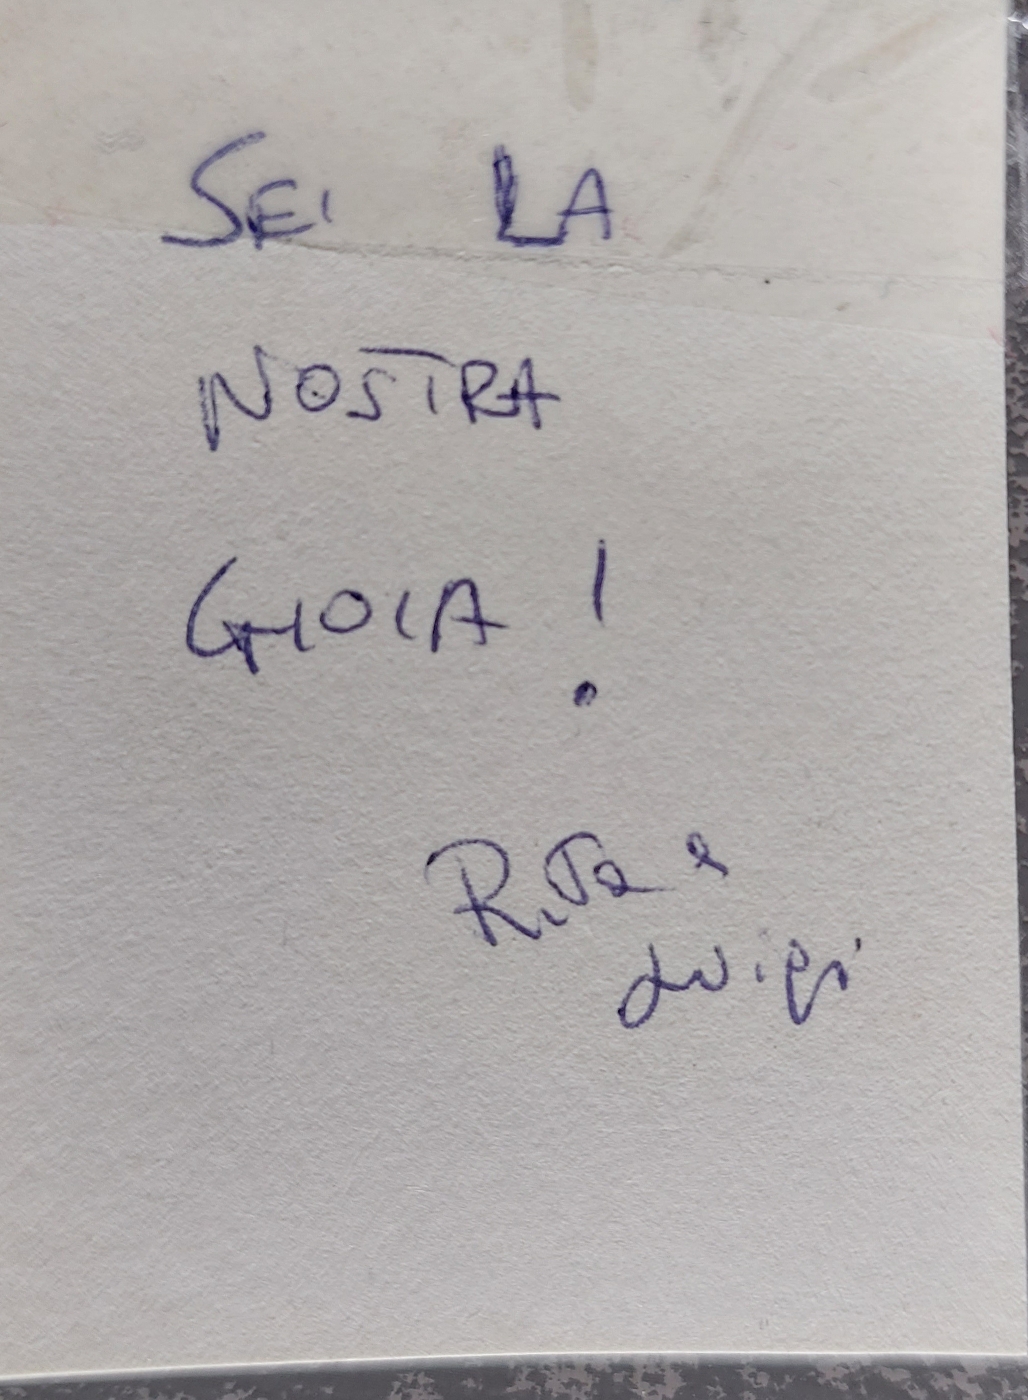 SEI LA
NOSTRA
GIOIA !
Rita e
Luigi